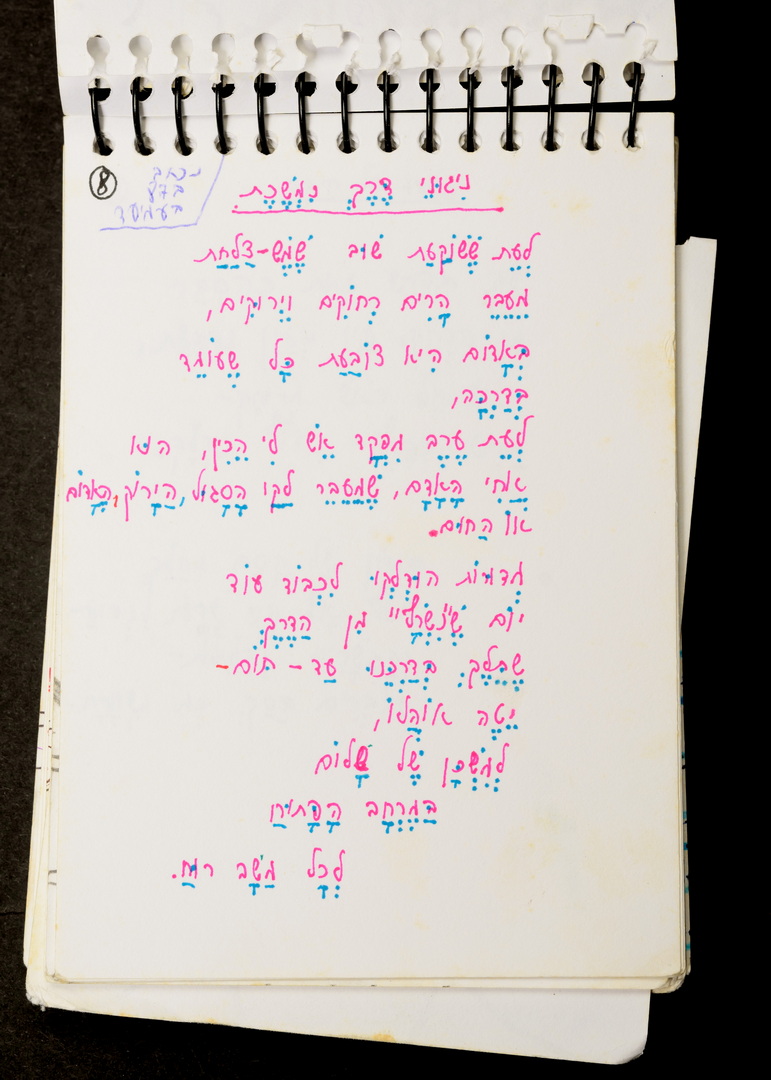 8
נכתב
בדע
בעמיעד
נִיגוּנֵי דֶרֶךְ נִמְשֶׁכֶת
לְעֵת שֶׁשּׁוֹקַעַת שׁוּב שֶׁמֶשׁ-צַלַּחַת
מֵעֵבֶר הָרִים רְחוֹקִים וִירוּקִים,
בְּאָדוֹם הִיא צוֹבַעַת כָּל שֶׁעוֹמֵד
בְּדַרְכָּהּ,
לְעֵת עֶרֶב מִפְקַד אֵשׁ לִי הֵכִין, הוּא
אֲחִי הָאָדָם, שֶׁמֵּעֵבֶר לַקַּו הַסָּגוֹל, הַיָּרוֹק, הָאָדוֹם
אוֹ הַחוּם.
מְדוּרוֹת הוּדְלְקוּ לִכְבוֹד עוֹד
יוֹם שֶׁ"נִּשְׂרַף" מִן הַדֶּרֶךְ
שֶׁתֵּלֵךְ בְּדַרְכֵּנוּ עַד - תּוֹם -
יִטֶּה אוֹהֲלוֹ,
לְמִשְׁכָּן שֶׁל שָׁלוֹם
בַּמֶּרְחָב הַפָּתוּחַ
לְכָל מַשַּׁב רוּחַ.